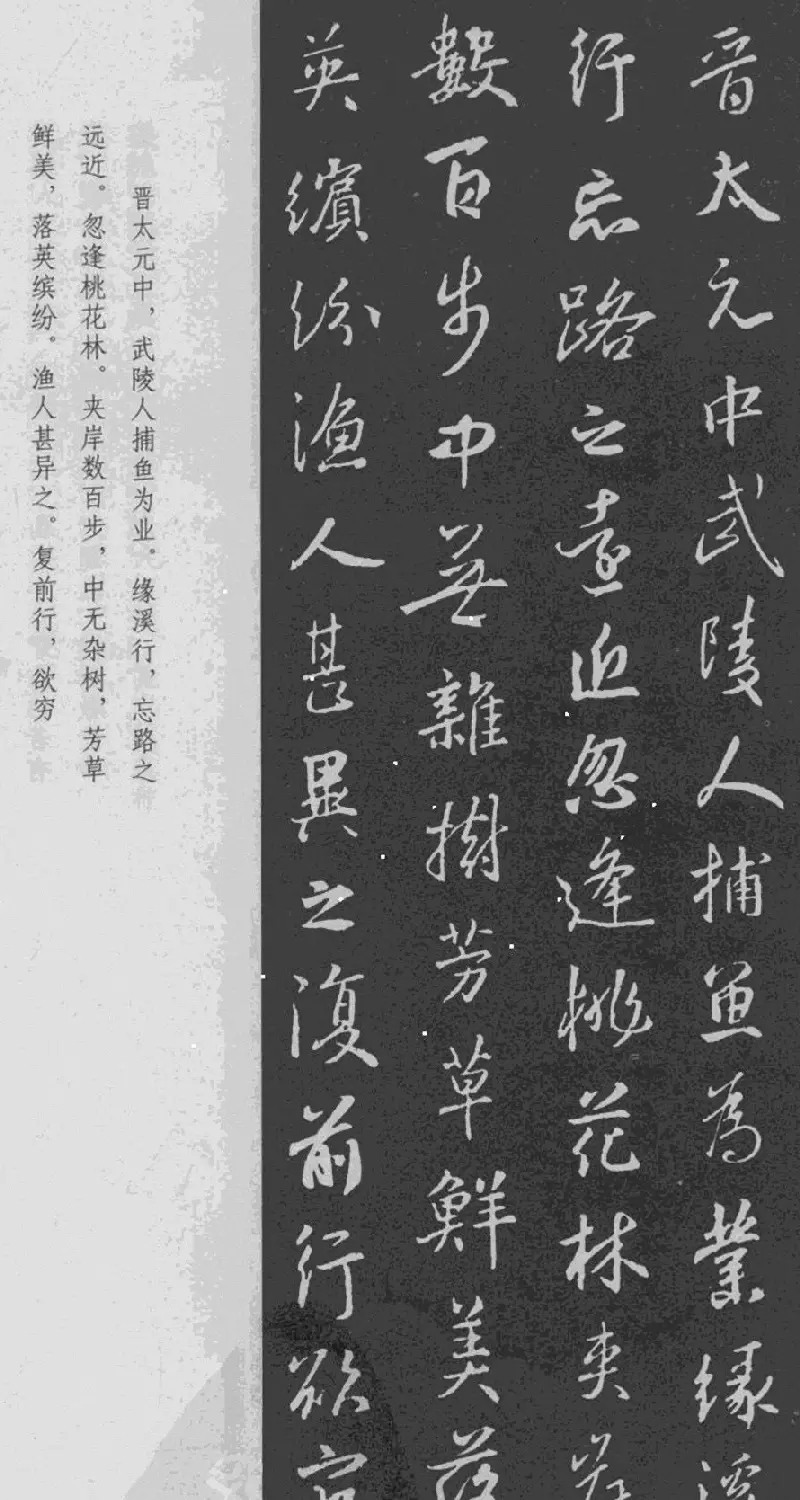 晋太元中武陵人捕魚為業緣溪
行忘路之遠近忽逢桃花林夾岸
數百步中無雜樹芳草鮮美落
英繽紛漁人甚異之復前行欲窮
晋太元中，武陵人捕鱼为业。缘溪行，忘路之
远近。忽逢桃花林。夹岸数百步，中无杂树，芳草
鲜美，落英缤纷。渔人甚异之。复前行，欲穷